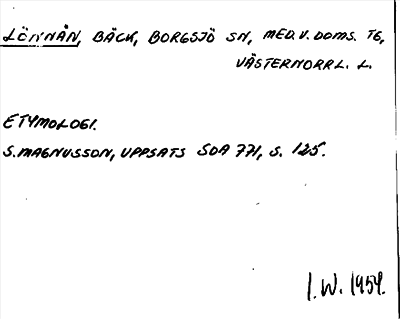 LÖNNÅN, BÄCK, BORGSJÖ SN, MED.V. DOMS. TG,
VÄSTERNORRL. L.
ETYMOLOGI.
S. MAGNUSSON, UPPSATS SOA 771, S. 125.
I.W. 1954.